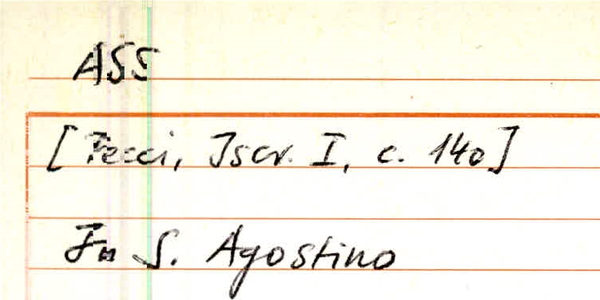 ASS
[Pecci, Iscr. I, c. 140]
In S. Agostino